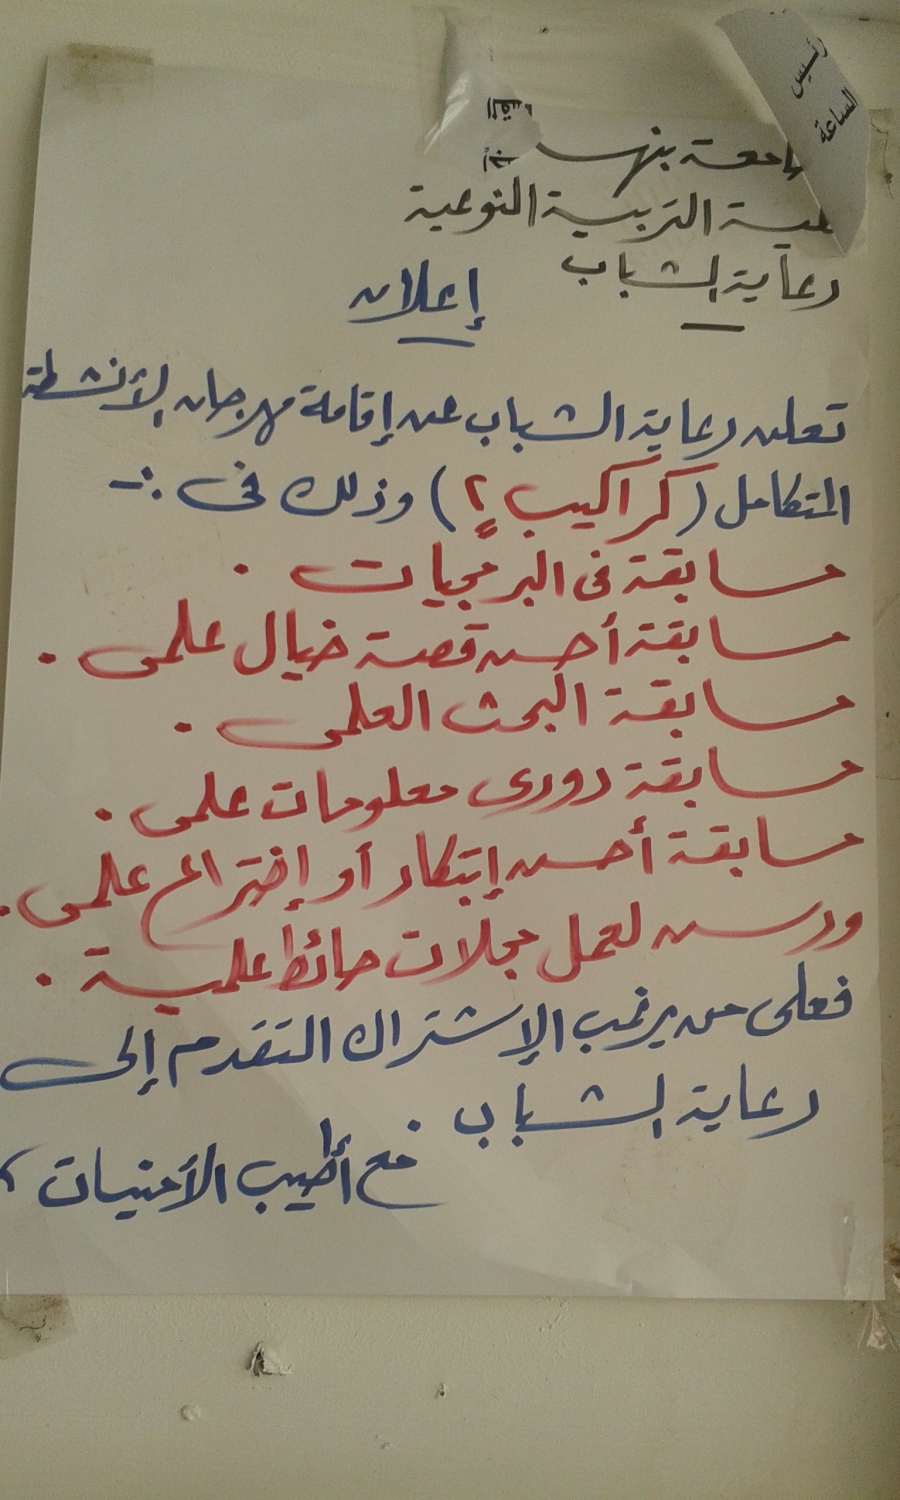 رئيس
الساعة
جامعة بنها
كلية التربية النوعية
رعاية الشباب
إعلان
تعلن رعاية الشباب عن إقامة مهرجان الأنشطة
المتكامل (كراكيب ؟) وذلك فى :-
مسابقة فى البرمجيات .
مسابقة أحسن قصة خيال علمى .
مسابقة البحث العلمى .
مسابقة دورى معلومات علمى .
مسابقة أحسن إبتكار أو إختراع علمى .
ورسن لعمل مجلات حائط علمية .
فعلى من يرغب الإشتراك التقدم إلى
رعاية الشباب .
مع أطيب الأمنيات ،